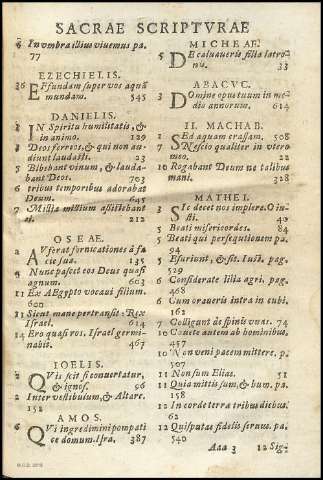 SACRAE SCRIPTVRAE
6 In umbra illius viuemus pa.
77
EZECHIELIS.
36 Effundam super vos aquã
mundam. 545
DANIELIS.
3 IN Spiritu humilitatis, &
in animo. 129
5 Deos ferreos, & qui non au
diunt laudasti. 23
5 Bibebant vinum, & lauda-
bant Deos. 763
6 tribus temporibus adorabat
Deum. 645
7 Millia millium assistebant
ei. 212
OSEAE.
2 AVferat fornicationes à fa
cie sua. 135
9 Nunc pascet eos Deus quasi
agnum. 603
11 Ex AEgypto vocaui filium.
600
31 Sicut mane pertransiit Rex
Israel. 614
14 Ero quasi ros. Israel germi-
nabit. 467
IOELIS.
2 QVis scit si conuertatur,
& ignos. 96
2 Inter vestibulum, & Altare.
152
AMOS.
6 QVi ingredimini pompati
ce domum. Isra. 387
MICHEAE.
5 DEcaluaueris filia latro
nu. 33
ABACVC.
3 DOmine opus tuum in me-
dio annorum. 614
II. MACHAB.
1 SEd aquam crassam. 508
7 Nescio qualiter in vtero
meo. 22
10 Rogabant Deum ne talibus
mani. 328
MATHEI.
3 SIc decet nos implere. O iu-
sti. 40
5 Beati misericordes. 84
5 Beati qui persequutionem pa.
94
5 Esuriunt, & sit. Iusti. pag.
529
6 Considerate lilia agri. pag.
468
6 Cum oraueris intra in cubi.
162
7 Colligunt de spinis vuas. 74
10 Cauete autem ab hominibus.
457
10 Non veni pacem mittere. p.
507
11 Non sum Elias. 51
11 Quia mittis sum, & hum. pa.
158
12 In corde terra tribus diebus.
62
12 Quis putas fidelis seruus. pa.
540
Aaa 3 12 Sig-